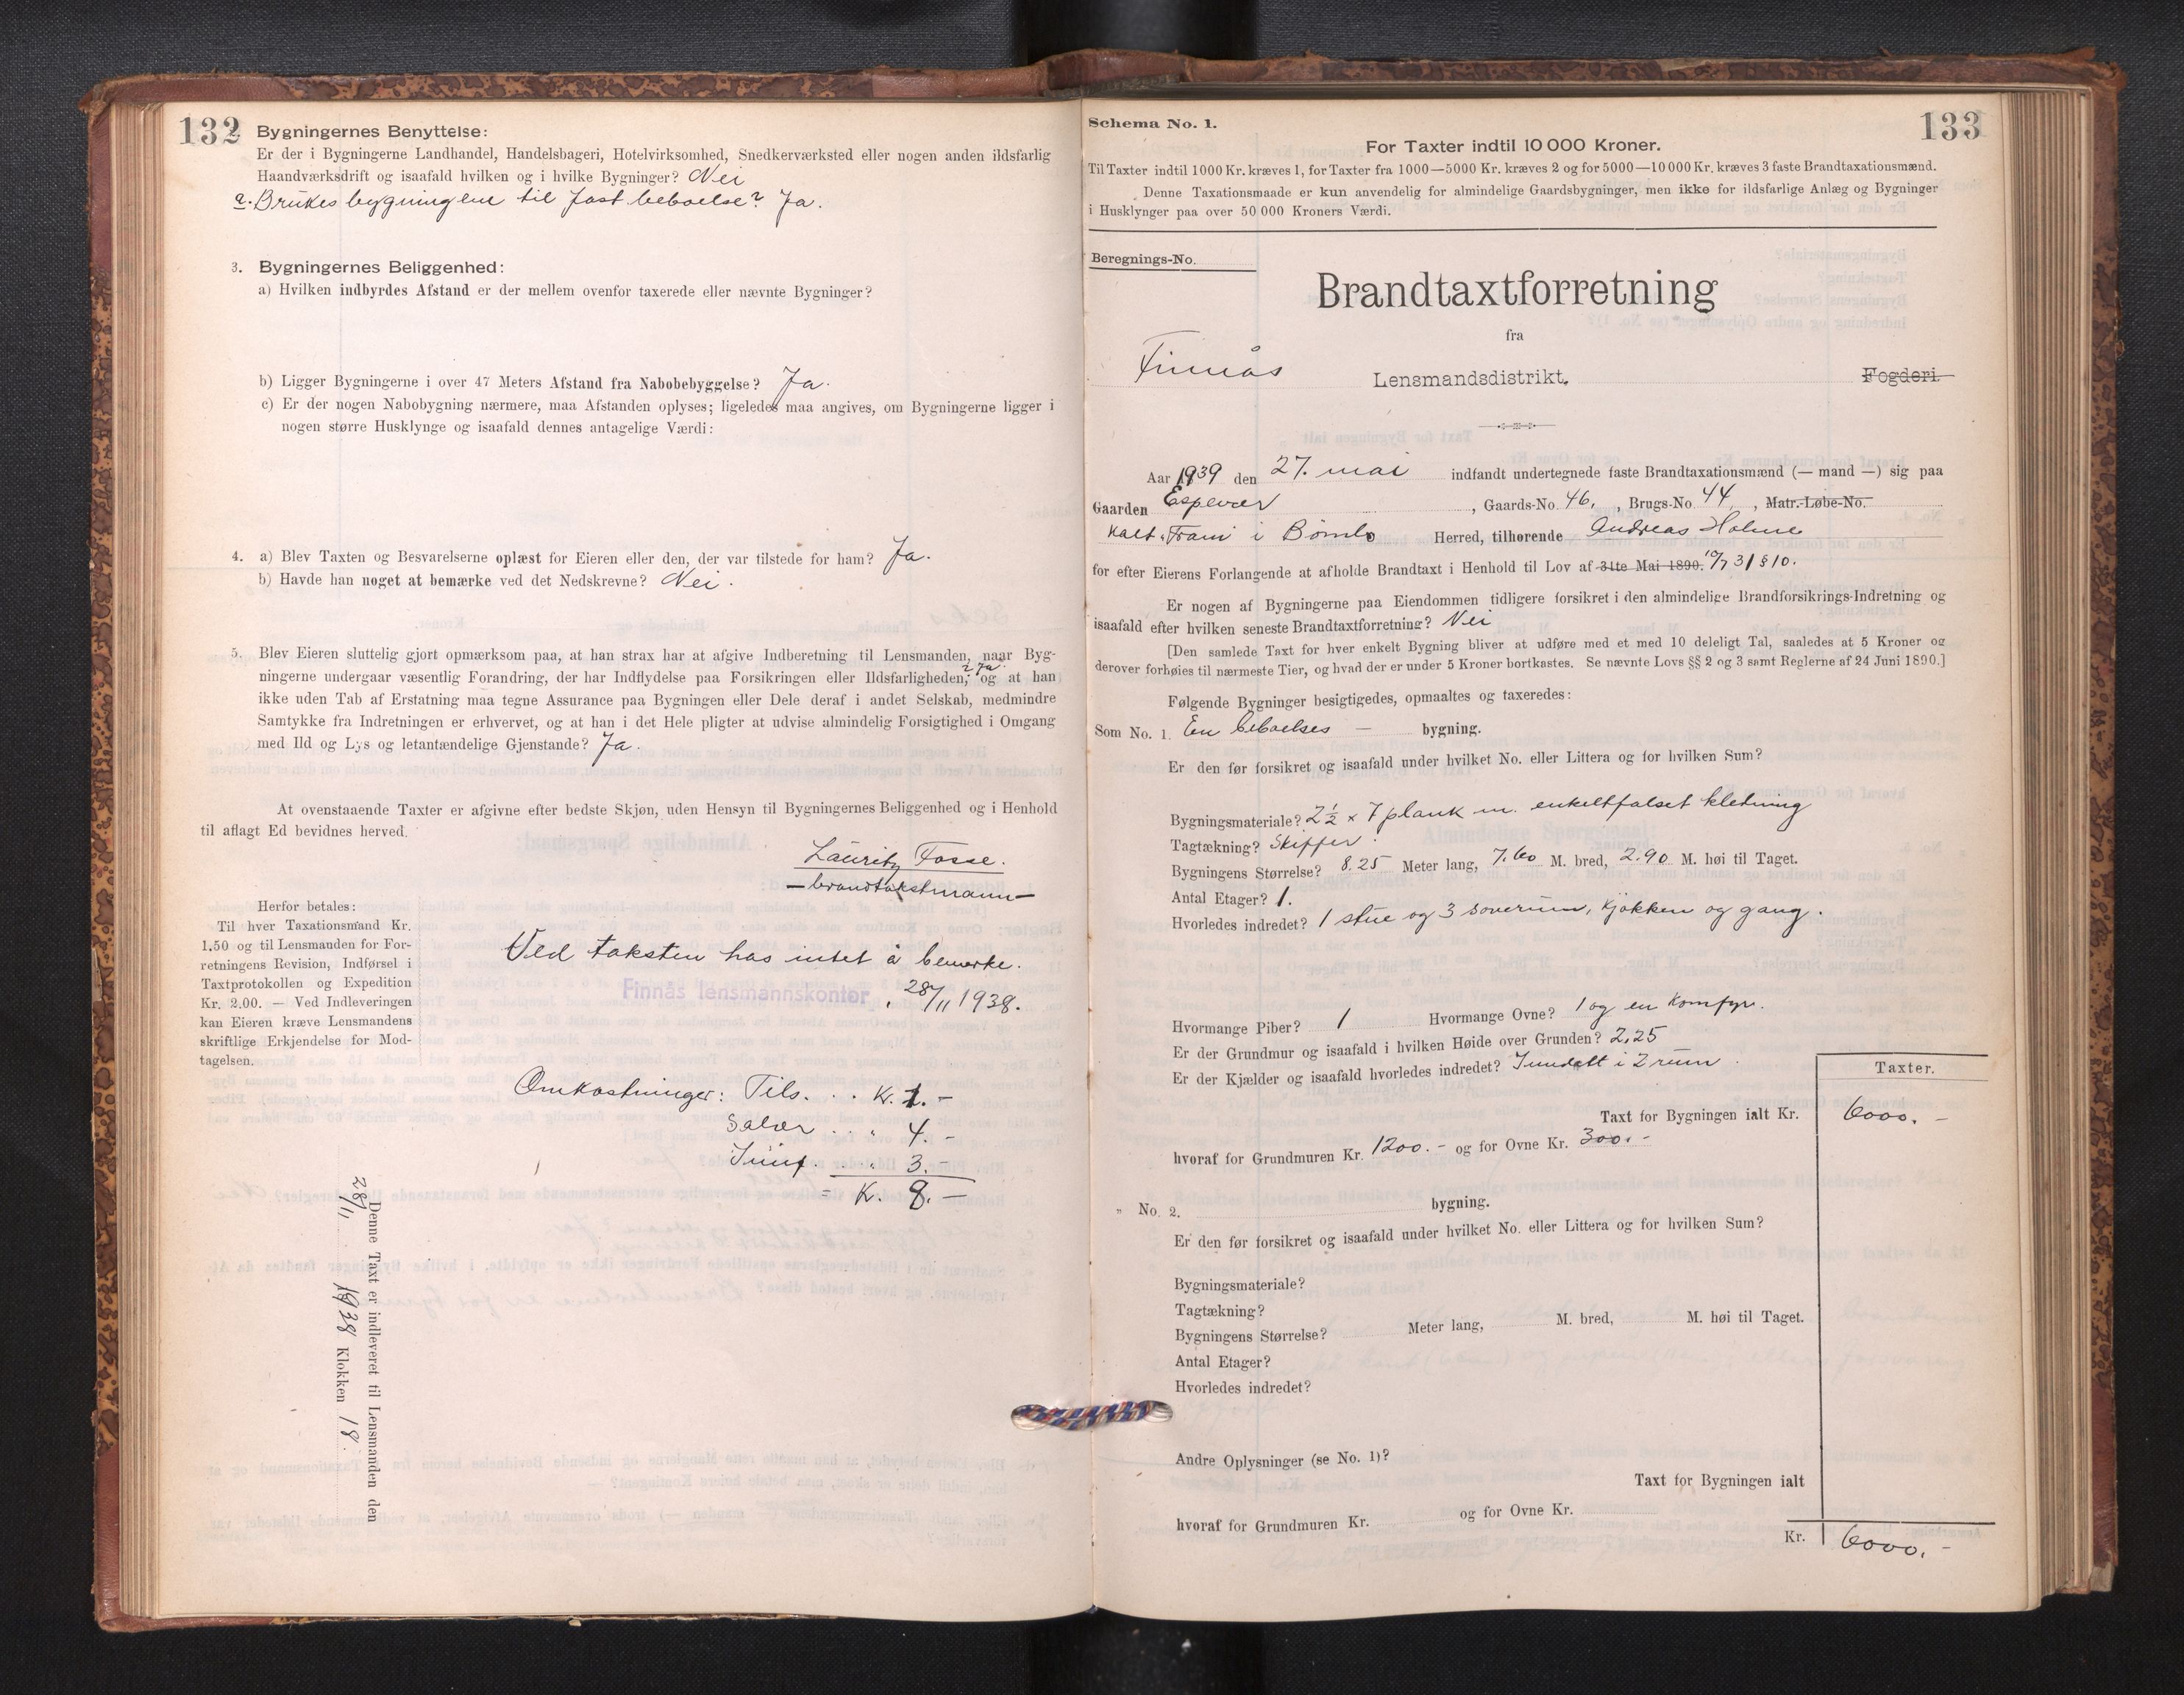 132
2. Bygningernes Benyttelse:
Er der i Bygningerne Landhandel, Handelsbageri, Hotelvirksomhed, Snedkerværksted eller nogen anden ildsfarlig
Haandværksdrift og isaafald hvilken og i hvilke Bygninger? Nei
a. Brukes bygningene til fast beboelse? Ja.
3. Bygningernes Beliggenhed:
a) Hvilken indbyrdes Afstand er der mellem ovenfor taxerede eller nævnte Bygninger?
b) Ligger Bygningerne i over 47 Meters Afstand fra Nabobebyggelse? Ja.
c) Er der nogen Nabobygning nærmere, maa Afstanden oplyses; ligeledes maa angives, om Bygningerne ligger i
nogen større Husklynge og isaafald dennes antagelige Værdi:
4. a) Blev Taxten og Besvarelserne oplæst for Eieren eller den, der var tilstede for ham? Ja.
b) Havde han noget at bemærke ved det Nedskrevne? Nei.
5. Blev Eieren sluttelig gjort opmærksom paa, at han strax har at afgive Indberetning til Lensmanden, naar Byg-
ningerne undergaar væsentlig Forandring, der har Indflydelse paa Forsikringen eller Ildsfarligheden, ? Ja. og at han
ikke uden Tab af Erstatning maa tegne Assurance paa Bygningen eller Dele deraf i andet Selskab, medmindre
Samtykke fra Indretningen er erhvervet, og at han i det Hele pligter at udvise almindelig Forsigtighed i Omgang
med Ild og Lys og letantændelige Gjenstande? Ja.
At ovenstaaende Taxter er afgivne efter bedste Skjøn, uden Hensyn til Bygningernes Beliggenhed og i Henhold
til aflagt Ed bevidnes herved.
Lauritz Fosse.
- brandtakstmann -
Herfor betales:
Til hver Taxationsmand Kr.
1.50 og til Lensmanden for For-
retningens Revision, Indførsel i
Taxtprotokollen og Expedition
Kr. 2.00. — Ved Indleveringen
kan Eieren kræve Lensmandens
skriftlige Erkjendelse for Mod-
tagelsen.
Ved taksten has intet å bemerke.
Finnås lensmannskontor, 28/11 1938.
Omkostninger: Tils. . . Kr. 1. -
Salær . . . " 4. -
3. -
= Kr. 8. -
Denne Taxt er indleveret til Lensmanden den
28/11 1938 Klokken 18.
Schema No. 1.
133
For Taxter indtil 10 000 Kroner.
Til Taxter indtil 1000 Kr. kræves 1, for Taxter fra 1000—5000 Kr. kræves 2 og for 5000—10 000 Kr. kræves 3 faste Brandtaxationsmænd.
Denne Taxationsmaade er kun anvendelig for almindelige Gaardsbygninger, men ikke for ildsfarlige Anlæg og Bygninger
i Husklynger paa over 50 000 Kroners Værdi.
Beregnings-No.
Brandtaxtforretning
fra
Finnås Lensmandsdistrikt, Fogderi.
Aar 1939 den 27. mai indfandt undertegnede faste Brandtaxationsmænd (— mand —) sig paa
Gaarden Espevær, Gaards-No. 46, , Brugs-No. 44 , Matr.-Løbe-No.
kalt "Fram i Bømlo Herred, tilhørende Andreas Holme
for efter Eierens Forlangende at afholde Brandtaxt i Henhold til Lov af 31te Mai 1890. 10/7 31 § 10.
Er nogen af Bygningerne paa Eiendommen tidligere forsikret i den almindelige Brandforsikrings-Indretning og
isaafald efter hvilken seneste Brandtaxtforretning? Nei
[Den samlede Taxt for hver enkelt Bygning bliver at udføre med et med 10 deleligt Tal, saaledes at 5 Kroner og
derover forhøies til nærmeste Tier, og hvad der er under 5 Kroner bortkastes. Se nævnte Lovs §§ 2 og 3 samt Reglerne af 24 Juni 1890.]
Følgende Bygninger besigtigedes, opmaaltes og taxeredes:
Som No. 1. En beboelses — bygning.
Er den før forsikret og isaafald under hvilket No. eller Littera og for hvilken Sum?
Bygningsmateriale? 2½ x 7 plank m. enkeltfalset kledning
Tagtækning? Skiffer.
Bygningens Størrelse? 8.25 Meter lang, 7.60 M. bred, 2.90 M. høi til Taget.
Antal Etager? 1.
Hvorledes indredet? 1 stue og 3 soverum, kjøkken og gang.
Hvormange Piber? 1 Hvormange Ovne? 1 og en komfyr.
Er der Grundmur og isaafald i hvilken Høide over Grunden? 2,25
Er der Kjælder og isaafald hvorledes indredet? Inndelt i 2 rum.
Taxter.
Taxt for Bygningen ialt Kr. 6000. -
hvoraf for Grundmuren Kr. 1200. - og for Ovne Kr. 300. -
" No. 2. bygning.
Er den før forsikret og isaafald under hvilket No. eller Littera og for hvilken Sum?
Bygningsmateriale?
Tagtækning?
Bygningens Størrelse? Meter lang, M. bred, M. høi til Taget.
Antal Etager?
Hvorledes indredet?
Andre Oplysninger (se No. 1)?
Taxt for Bygningen ialt
hvoraf for Grundmuren Kr. og for Ovne Kr.
Kr. 6000. -